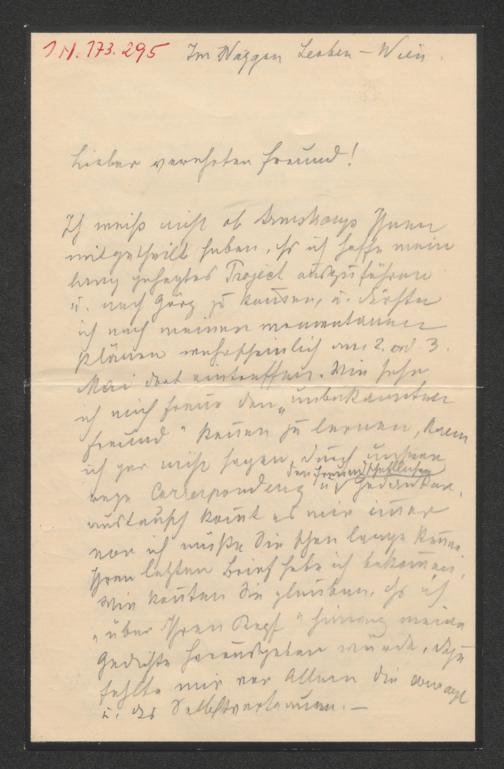 I.N. 173.295 Im Waggon Leoben – Wien.
Lieber verehrter Freund!
Ich weiß nicht ob Ihnen
mitgetheilt haben, daß ich hoffe mein
lang gehegtes Project auszuführen
u. nach Görz zu kommen, u. dürfte
ich nach meinen momentanen
Plänen wahrscheinlich am 2. od 3.
Mai dort eintreffen. Wie sehr
ich mich freue den „unbekannten
Freund" kennen zu lernen, kann
ich gar nicht sagen, durch unsere
rege Correspondenz u den freundschaftlichen Gedanken-
austausch kommt es mir immer
vor ich müßte Sie schon lange kennen.
Ihren letzten Brief habe ich bekommen,
wie konnten Sie glauben, daß ich
„über Ihren Kopf" hinweg meine
Gedichte herausgeben würde, dazu
fehlte mir vor Allem die courage
u. das Selbstvertrauen. –